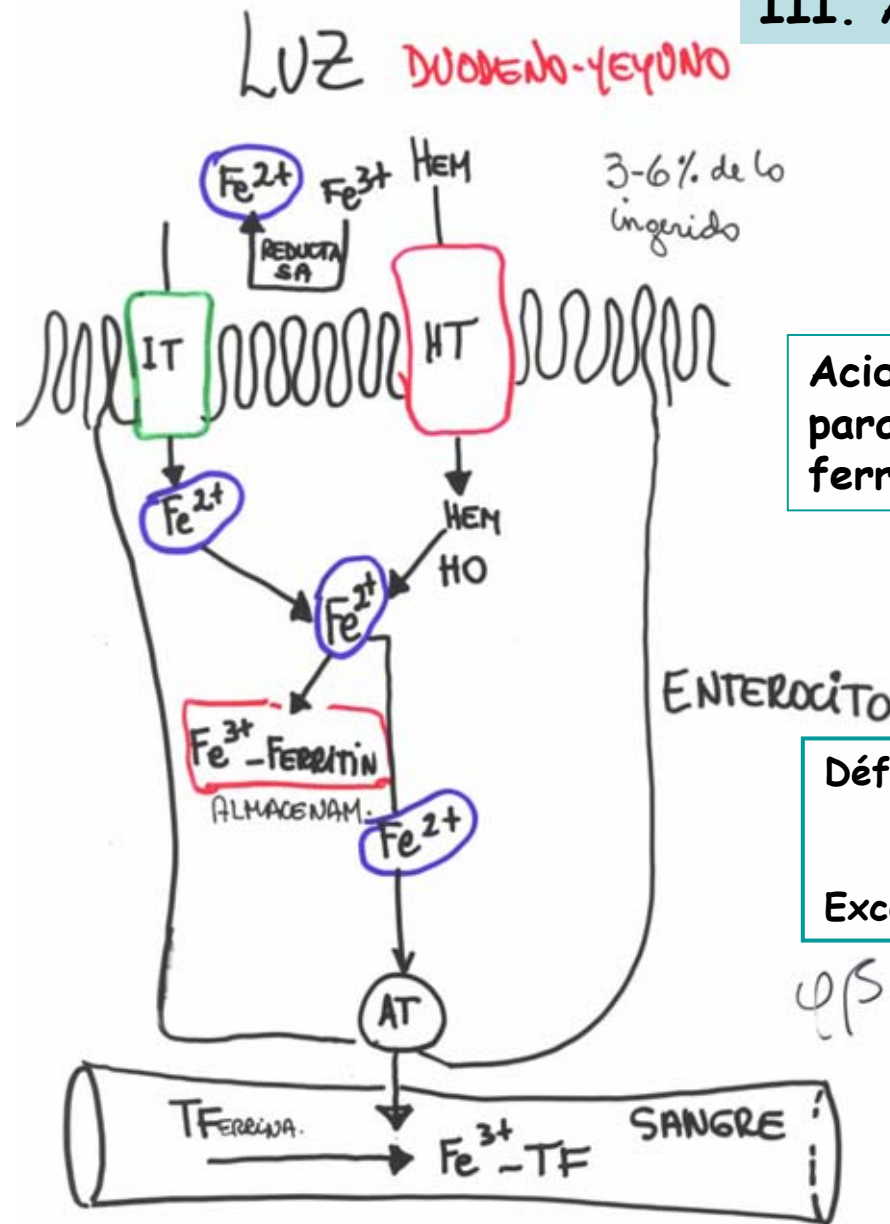 III.
LUZ DUODENO-YEYUNO
Fe2+ Fe3+ HEM
3-6% de lo
ingerido
REDUCTA
SA
IT
HT
para
Fe2+
HEM
HO
Fe2+
ENTEROCITO
Fe3+-FERRITIN
ALMACENAM.
Déf
Fe2+
Exc
φβ
AT
TFERRINA.
SANGRE
Fe3+-TF